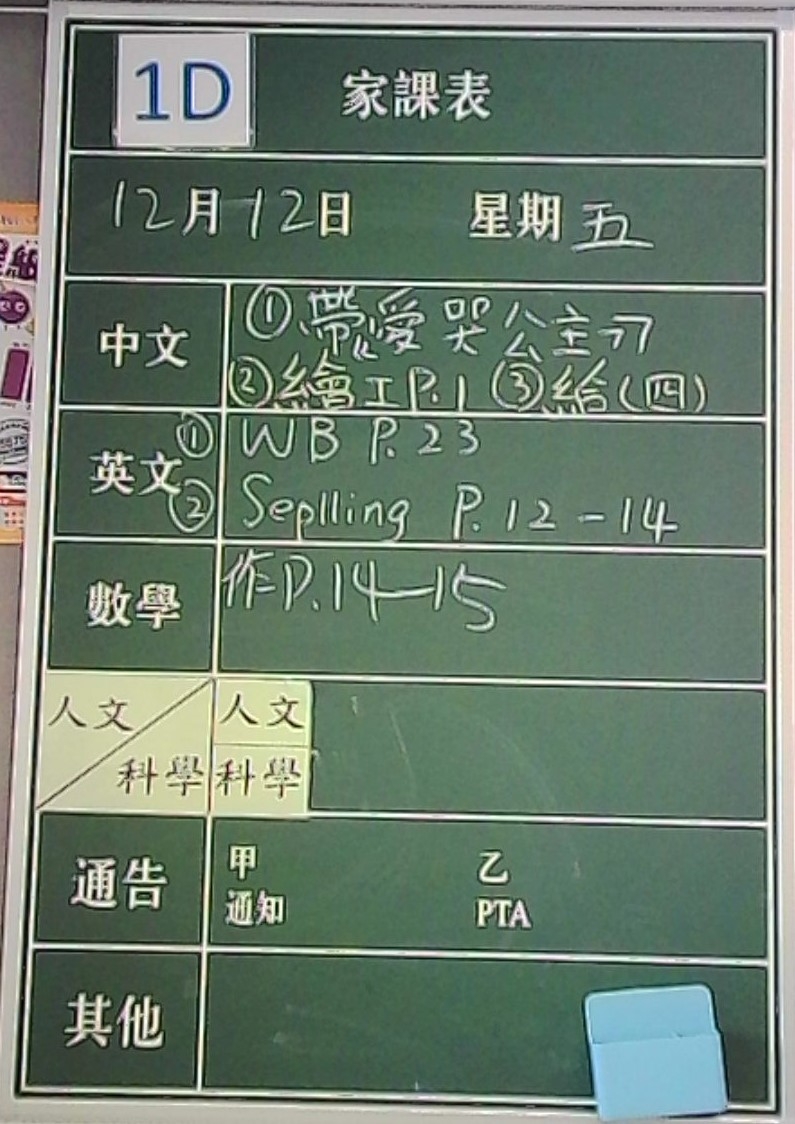 1D 家課表
12月12日 星期五
中文 ①帶愛哭公主
②繪工P.1 ③給(四)
英文 ① WB P.23
② Seplling P.12-14
數學 作P.14-15
人文 人文
科學 科學
通告 甲 乙
通知 PTA
其他